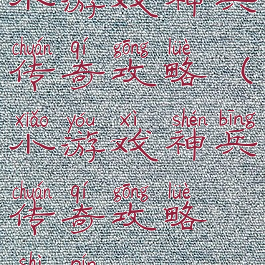 小游戏神兵
chuán qí gōng lüè
传奇攻略（
xiǎo yóu xì shén bīng
小游戏神兵
chuán qí gōng lüè
传奇攻略